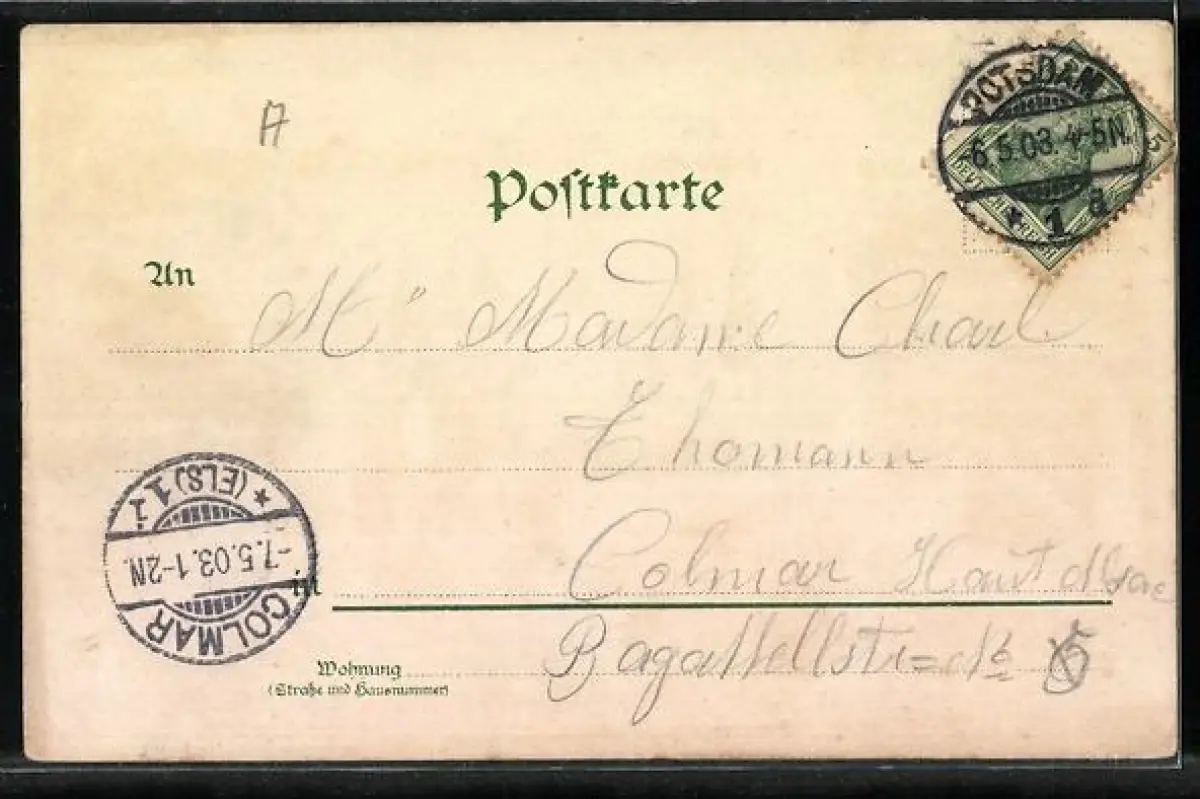 A
POTSDAM
6.5.03. 4-5N.
* 1 a
5
Postkarte
An
Madame Charl
Thomann
in Colmar Haut Alsace
COLMAR
-7.5.03. 1-2N.
* (ELS) 1 i
Wohnung
(Straße und Hausnummer)
Bagatellstr = № 5